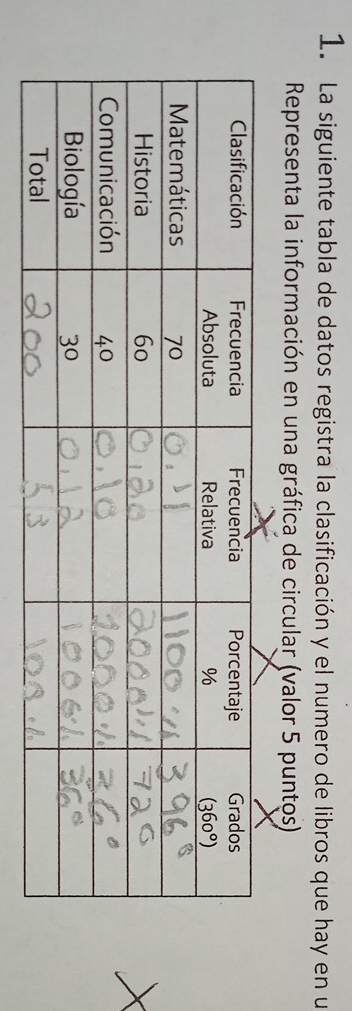 1. La siguiente tabla de datos registra la clasificación y el numero de libros que hay en u
Representa la información en una gráfica de circular (valor 5 puntos)
Clasificación Frecuencia Absoluta Frecuencia Relativa Porcentaje % Grados (360º)
Matemáticas 70 0.11 1100% 396°
Historia 60 0.20 2000% 720
Comunicación 40 0.10 1000% 36°
Biología 30 0.12 1000% 36°
Total 200 53 100%